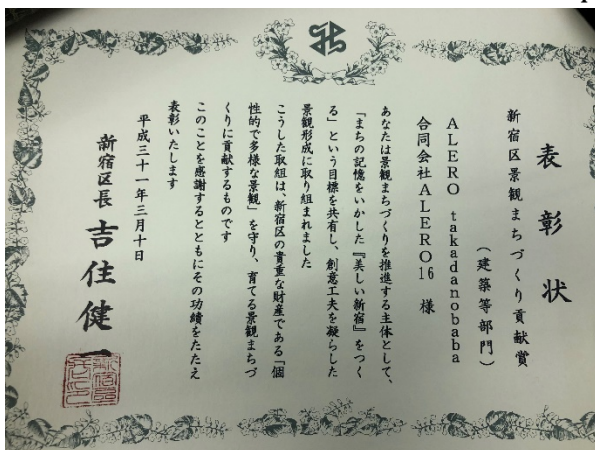 表彰状
新宿区景観まちづくり貢献賞
（建築等部門）
ALERO takadanobaba
合同会社ALERO16 様
あなたは景観まちづくりを推進する主体として、
「まちの記憶をいかした『美しい新宿』をつく
る」という目標を共有し、創意工夫を凝らした
景観形成に取り組まれました
こうした取組は、新宿区の貴重な財産である「個
性的で多様な景観」を守り、育てる景観まちづ
くりに貢献するものです
このことを感謝するとともにその功績をたたえ
表彰いたします
平成三十一年三月十日
新宿区長 吉住健一